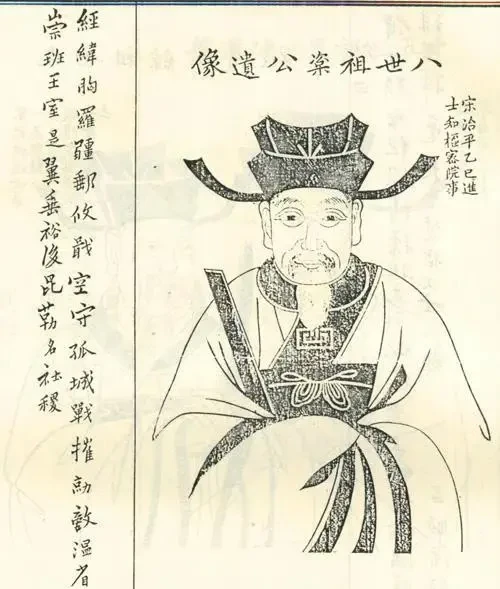 八世祖楶公遺像
宋治平乙巳進
士知樞密院事
經緯胸羅疆郵攸戢空守孤城戰摧勍敵溫省
崇班王室是翼垂裕後昆勒名社稷